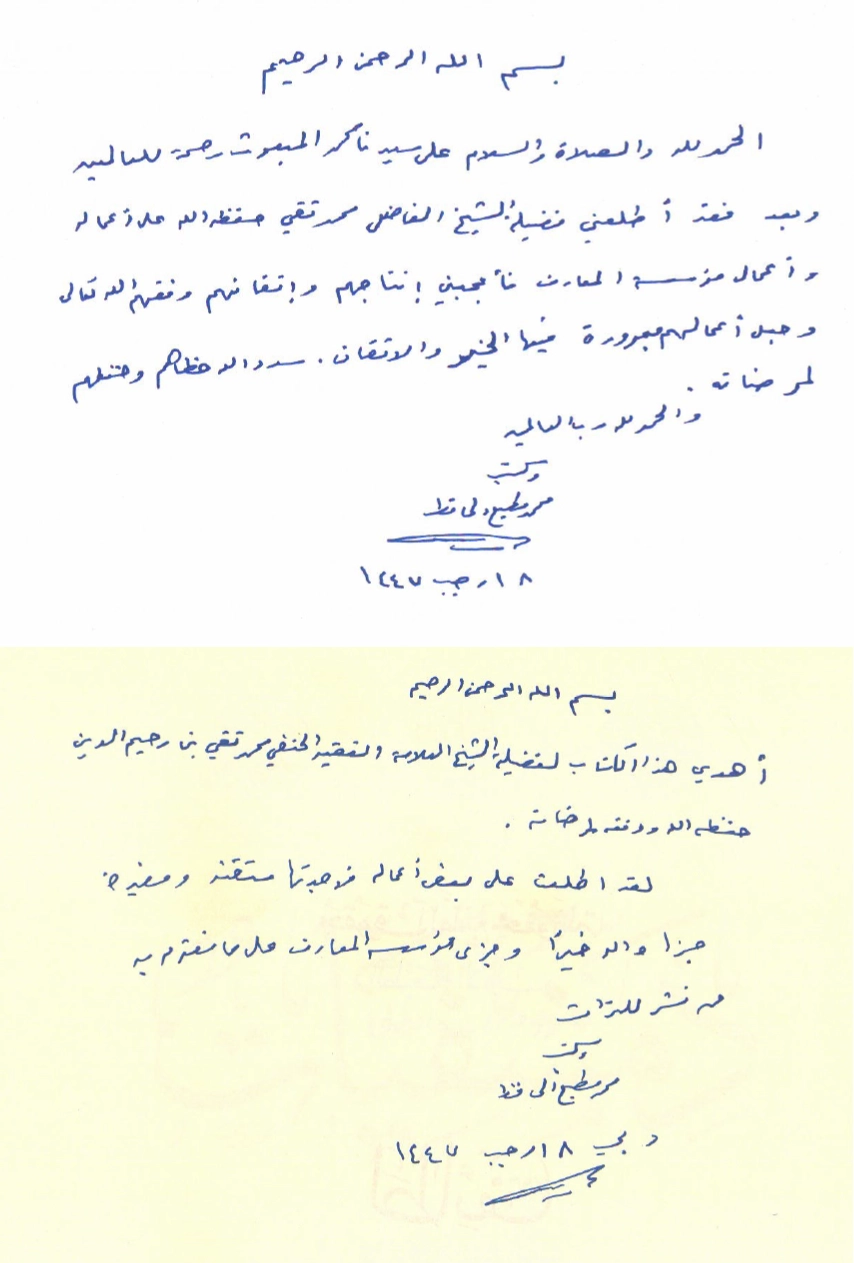 بسم الله الرحمن الرحيم
الحمد لله والصلاة والسلام على سيدنا محمد المبعوث رحمة للعالمين
وبعد فقد أطلعني فضيلة الشيخ الفاضل محمد تقي حفظه الله على أعماله
وأعمال مؤسسة المعارف فأعجبني إنتاجهم وإتقانهم وفقهم الله تعالى
وجعل أعمالهم مبرورة فيها الخير والاتقان. سدد الله خطاهم وحفظهم
لمرضاته.
والحمد لله رب العالمين
وكتب
محمد مطيع الحافظ
١٨ رجب ١٤٤٧
بسم الله الرحمن الرحيم
أهدي هذا الكتاب لفضيلة الشيخ العلامة الفقيه الحنفي محمد تقي بن رحيم الدين
حفظه الله ووفقه لمرضاته.
لقد اطلعت على بعض أعماله فوجدتها متقنة ومفيدة
جزاه الله خيرًا وجزى مؤسسة المعارف على ما تقوم به
من نشر للتراث
وكتب
محمد مطيع الحافظ
دبي ١٨ رجب ١٤٤٧